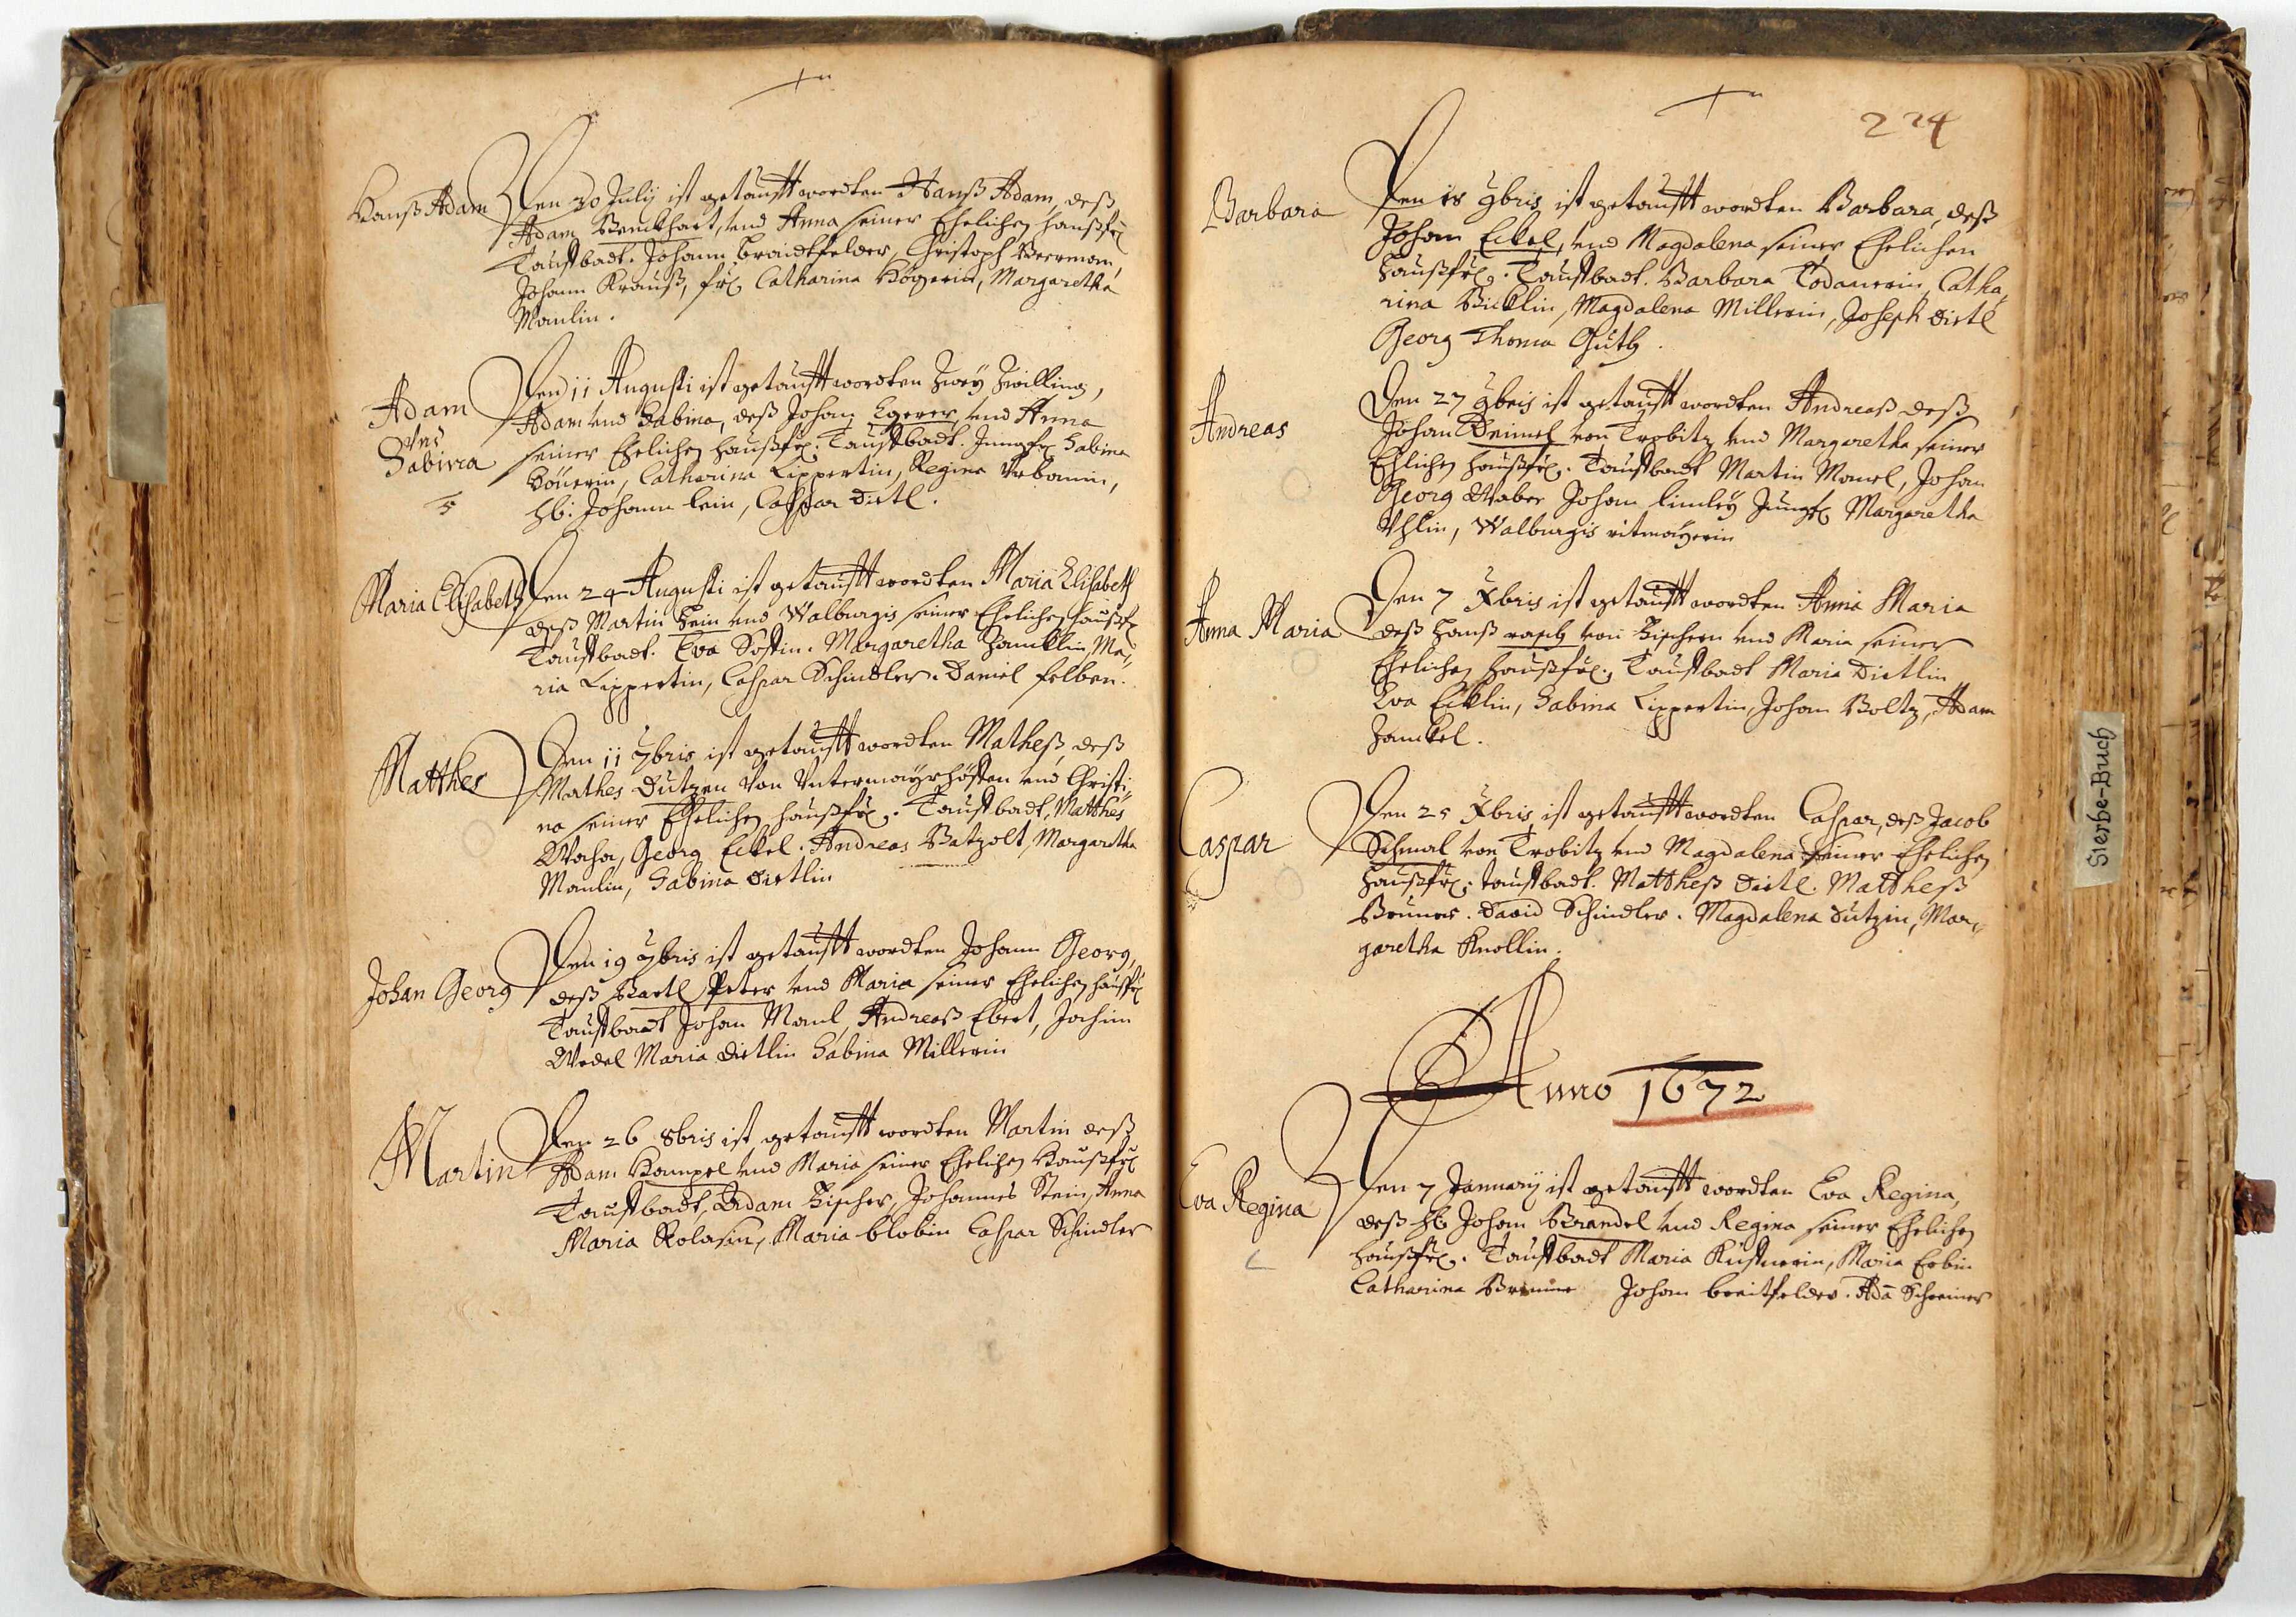 Hanß Adam
Den 30 July ist getaufft wordten Hanß Adam, deß
Adam Burckhart, und Anna seiner Ehelichen haußfr.
Tauffbadt. Johann Braidtfelder, Christoph Beerman,
Johann Krauß, fr. Catharina Högerin, Margaretha
Maulin.
Adam
und
Sabina
Den 11 Augusti ist getaufft wordten Zwey Zwilling,
Adam und Sabina, deß Johan Egerer und Anna
seiner Ehelichen haußfr. Tauffbadt. Jungfr. Sabina
Catharina Lippertin, Regina Urbanin,
hb: Johann lein, Caspar Dietl.
Maria Elisabeth
Den 24 Augusti ist getaufft wordten Maria Elisabeth
deß Martin Hein und Walburgis seiner Ehelichen haußfr.
Tauffbadt. Eva Margaretha Hancklin, Ma-
ria Lippertin, Caspar Schindler. Daniel felber.
Matthes
Den 11 7bris ist getaufft wordten Matheß, deß
Mathes Dutzen von Untermayrhöffen und Christi-
na seiner Ehelichen haußfr. Tauffbadt, Matthes
Georg Eckel. Andreas Batzolt, Margaretha
Maulin, Sabina Dietlin
Johan Georg
Den 19 7bris ist getaufft wordten Johann Georg,
deß Bartl Peter und Maria seiner Ehelichen haußfr.
Tauffbadt Johan Maul, Andreaß Ebert, Jochim
Wedel Maria Dietlin Sabina Millerin
Martin
Den 26 8bris ist getaufft wordten Martin deß
Adam Hampel und Maria seiner Ehelichen Haußfr.
Tauffbadt, Adam Fischer, Johannes Stein, Anna
Maria Maria Caspar Schindler
224
Barbara
Den 18 9bris ist getaufft wordten Barbara, deß
Johan Eckel, und Magdalena seiner Ehelichen
haußfr. Tauffbadt. Barbara Catha-
rina Bicklin, Magdalena Millerin, Joseph Dietl
Georg Thoma Guth.
Andreas
Den 27 9bris ist getaufft wordten Andreaß deß
Johan Deiml von Trobitz und Margaretha seiner
Ehlichen haußfr. Tauffbadt Martin Maul, Johan
Georg Waber Johan Jungfr. Margaretha
Uhlin, Walburgis
Anna Maria
Den 7 Xbris ist getaufft wordten Anna Maria
deß Hanß von Fischern und Maria seiner
Ehelichen haußfr. Tauffbadt Maria Dietlin
Eva Ecklin, Sabina Lippertin, Johan Boltz, Adam
Hanckel.
Caspar
Den 25 Xbris ist getaufft wordten Caspar, deß Jacob
Schmal von Trobitz und Magdalena seiner Ehelichen
haußfr. Tauffbadt. Mattheß Dietl. Mattheß
Bruner. David Schindler. Magdalena Dutzin, Mar-
garetha Knollin.
Anno 1672
Eva Regina
Den 7 January ist getaufft wordten Eva Regina,
deß hb Johan Brandel und Regina seiner Ehelichen
haußfr. Tauffbadt Maria Küstnerin, Maria Erbin
Catharina Johan breitfelder. Adā Schreiner
Sterbe-Buch